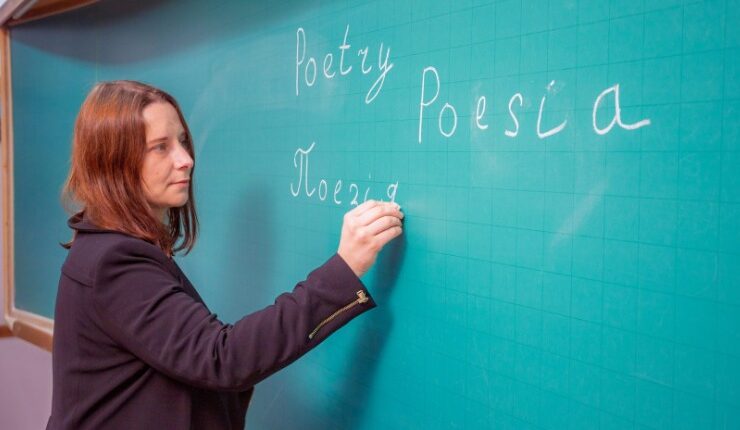 Poetry
Poesía
Поезія